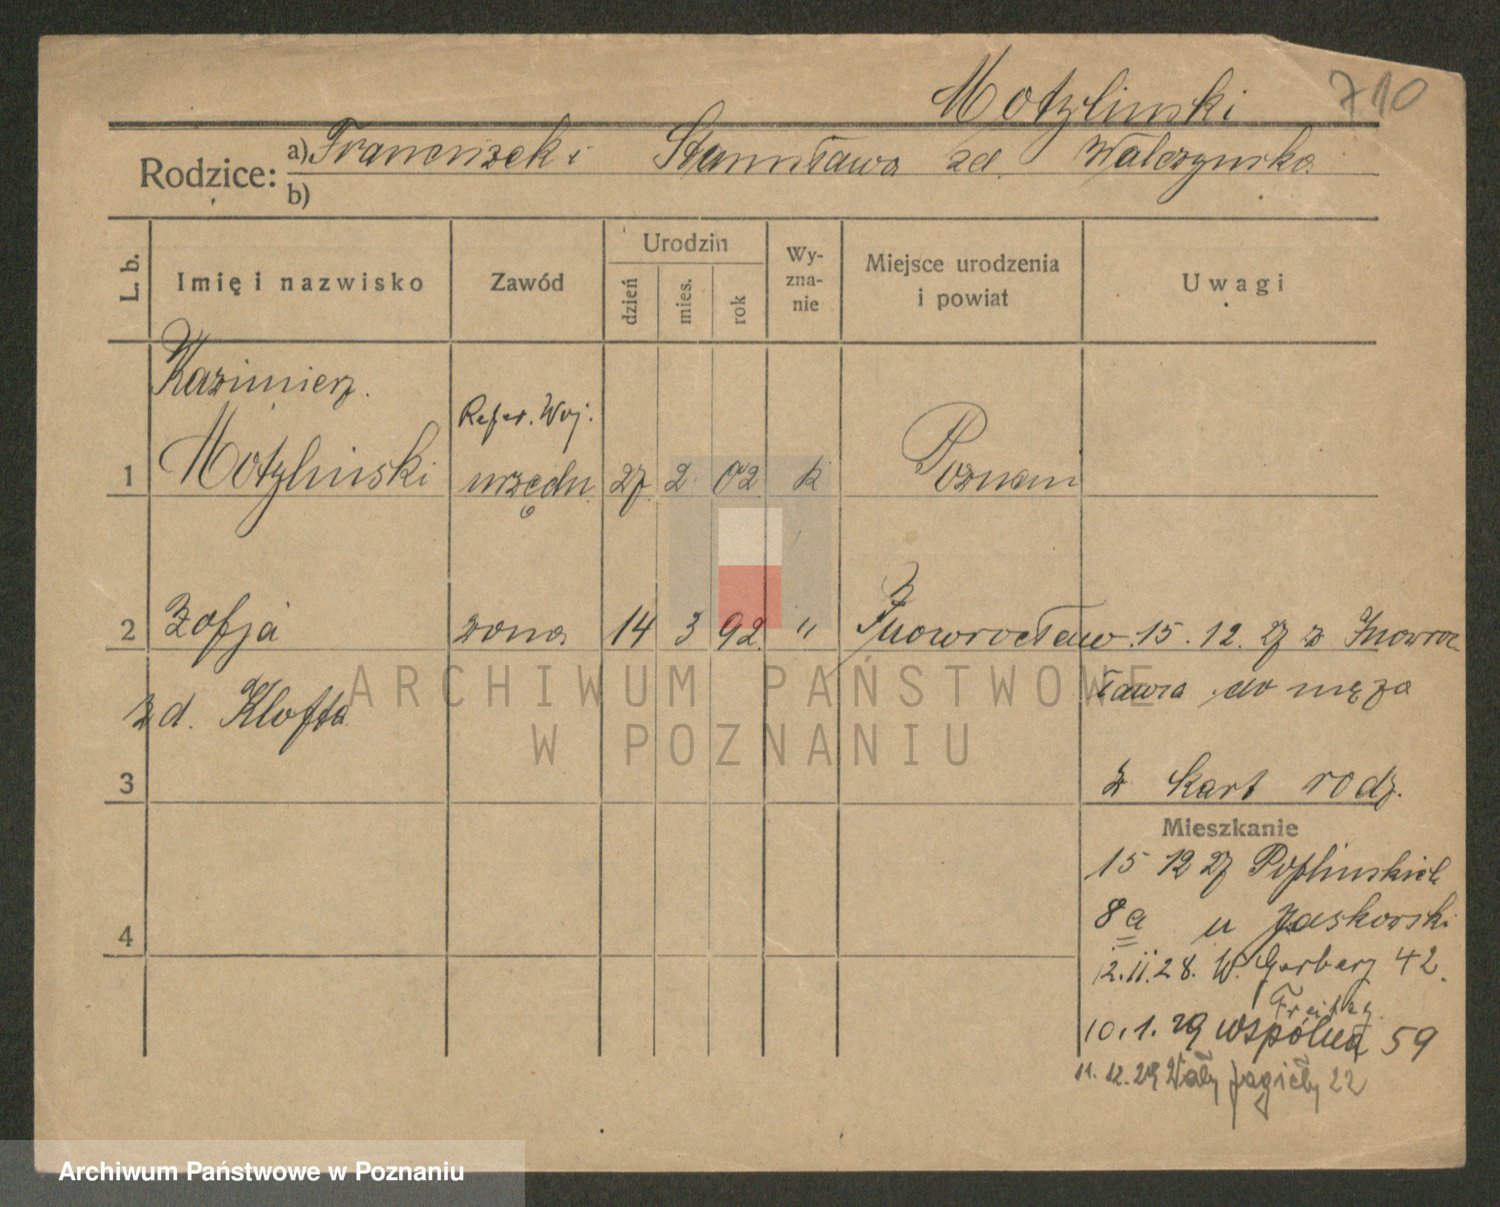 710
Motzlinski
Rodzice: a) Franciszek i Stanisława zd. Walczynska
b)
L. b.
Imię i nazwisko
Zawód
Urodzin
dzień
mies.
rok
Wy-
zna-
nie
Miejsce urodzenia
i powiat
Uwagi
Kazimierz
Refer. Woj.
1 Motzlinski urzędn. 27 2 02 k Poznan
2 Zofja żona 14 3 92 " Inowrocław 15. 12. 27 z Inowroc
ławia do męża
zd. Klofta
3 z kart rodz.
Mieszkanie
15 12 27 Poplinskich
8a u Jaskorski
4
2. 11. 28. W. Garbary 42.
Freitag
10. 1. 29 Wspólna 59
11. 12. 29 Wały Jagiełły 22
ARCHIWUM PAŃSTWOWE
W POZNANIU
Archiwum Państwowe w Poznaniu